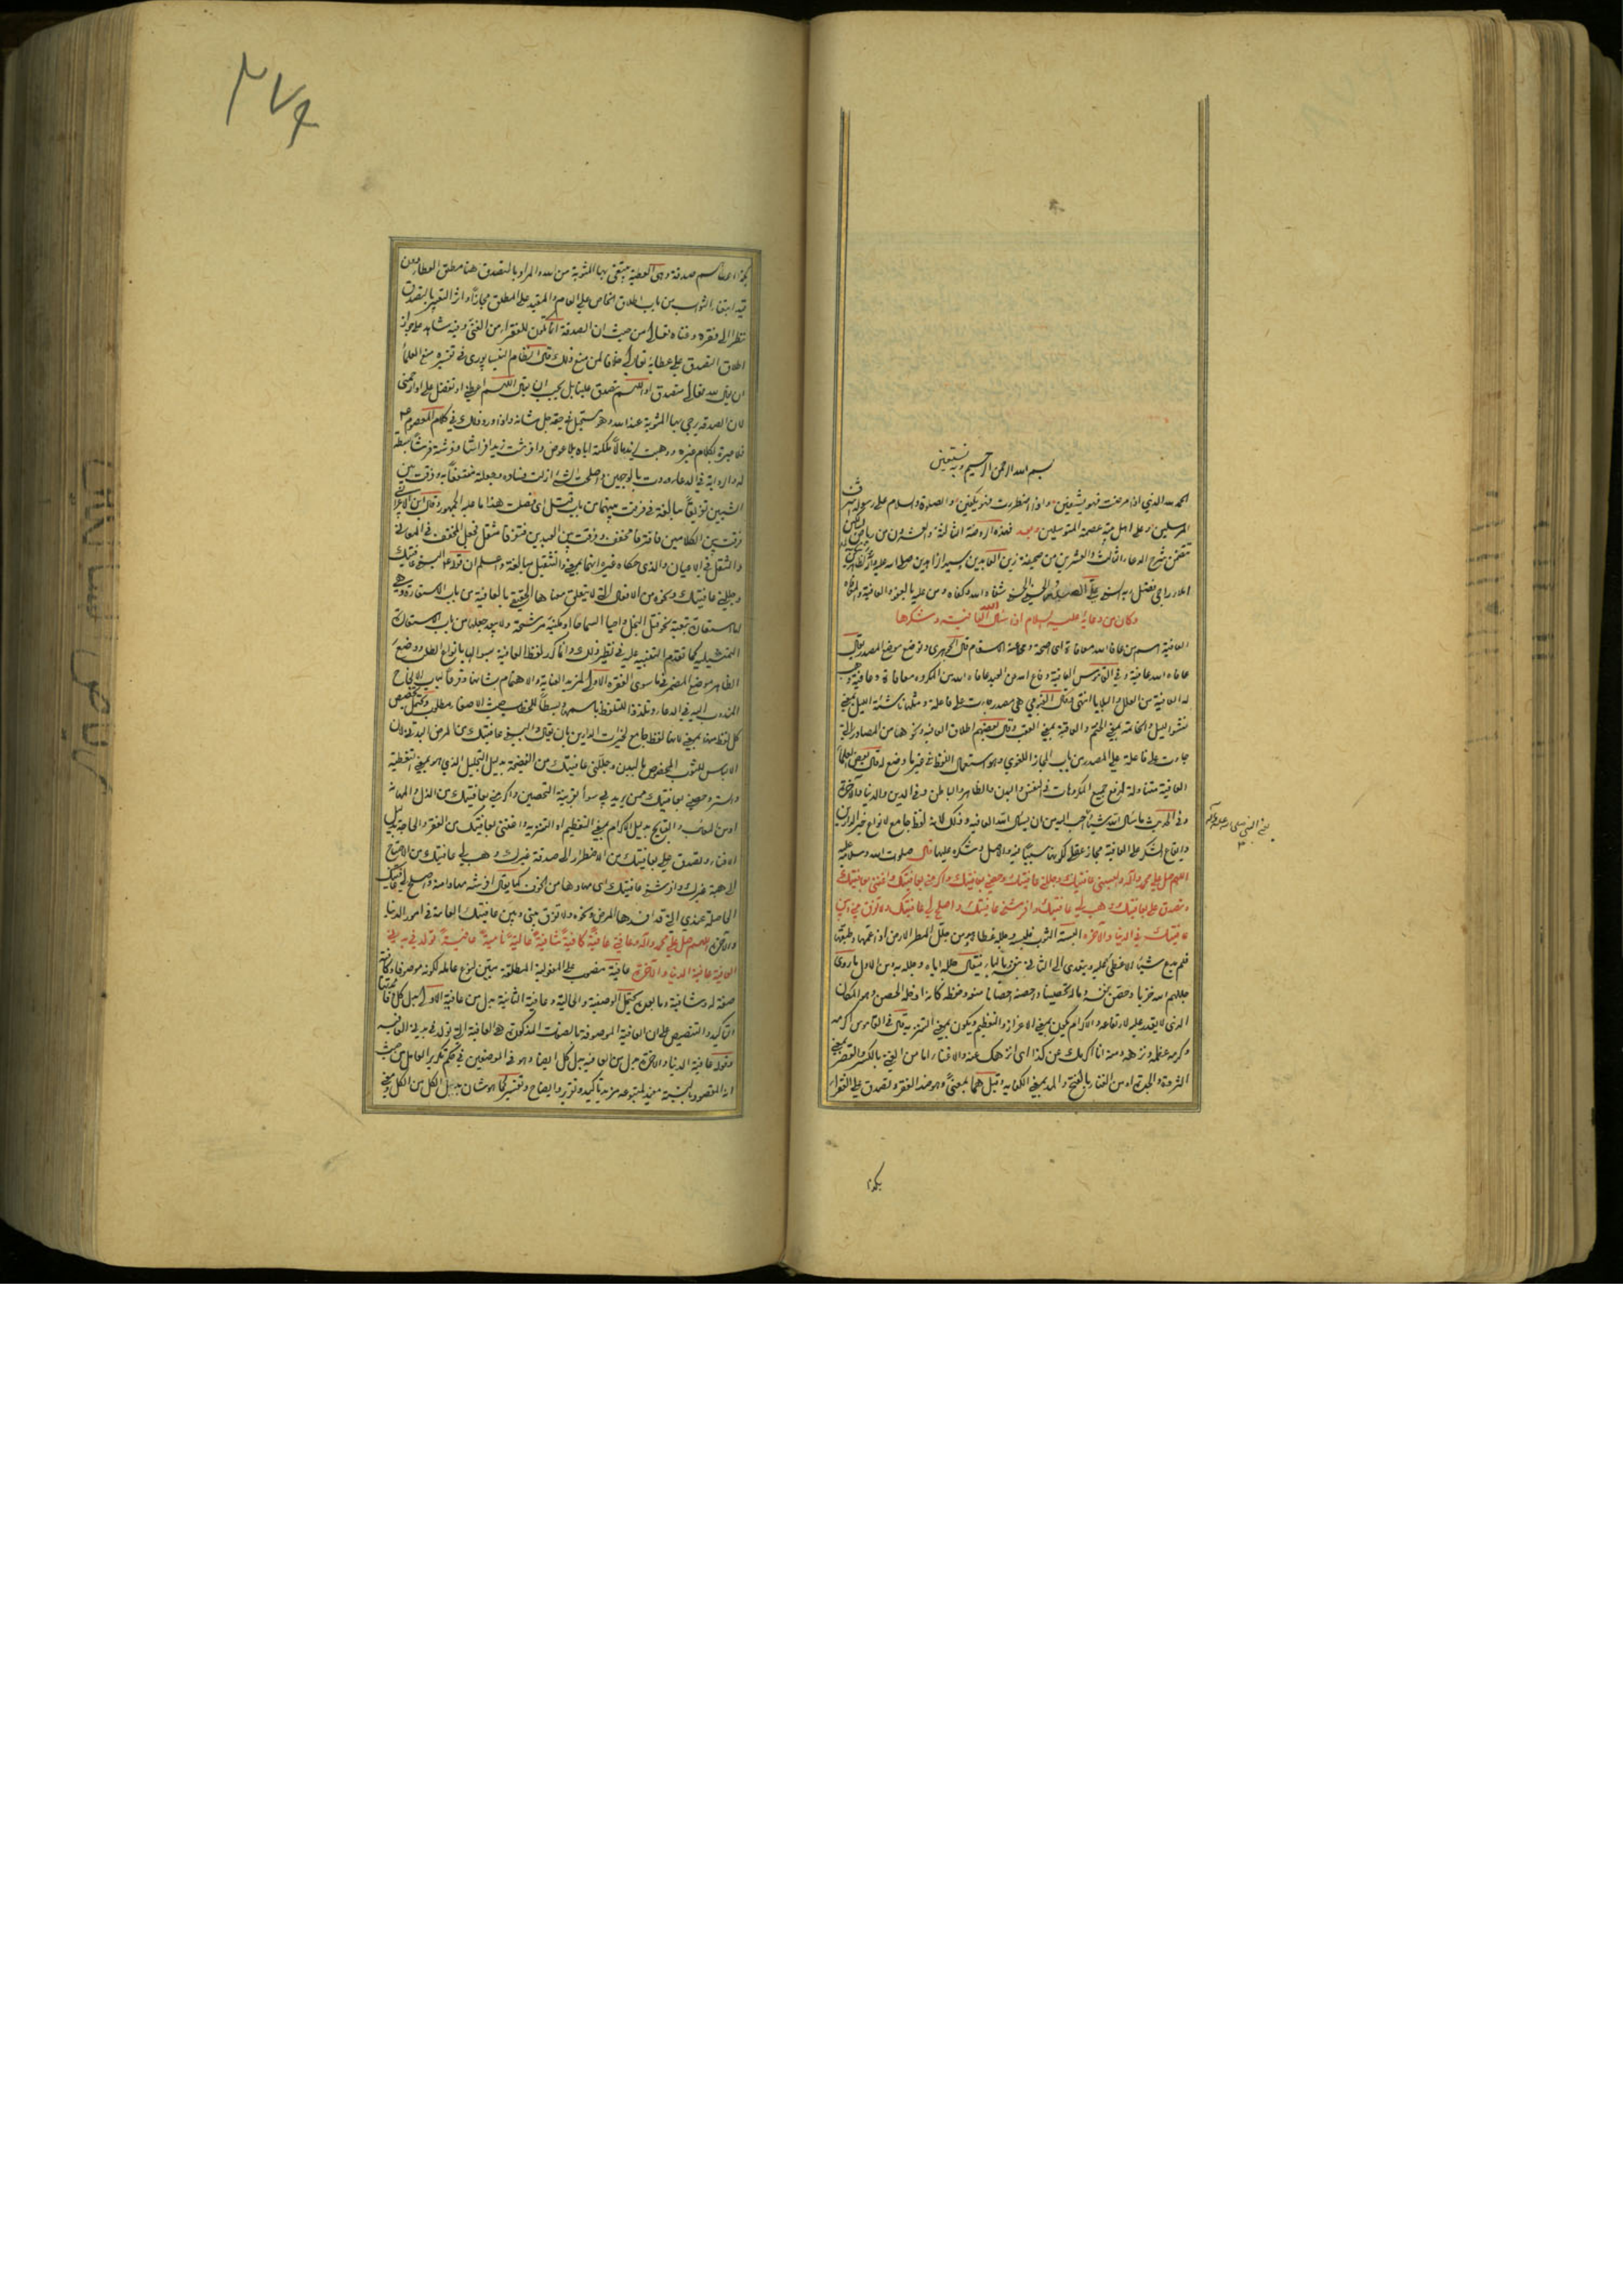 بسم الله الرحمن الرحيم وبه نستعين
الحمد لله الذي اذا مرضت فهو يشفين واذا اضطررت فهو يكفين والصلوة والسلام على رسوله اشرف
المرسلين وعلى اهل بيته عصمة المتوسلين وبعد فهذه الروضة الثالثة والعشرون من رياض
تتضمن شرح الدعاء الثالث والعشرين من صحيفة زين العابدين سيد الزاهدين صلى الله عليه
شفاه الله وكفاه ومن عليه بالعفو والعافية
وكان من دعائه عليه السلام اذا سال الله العافية وشكرها
العافية اسم من عافاه الله معافاة اى اصحه ومحا عنه الاسقام قال الجوهرى وتوضع موضع المصدر يقال
عافاه الله عافية وفي القاموس العافية دفاع الله عن العبد عافاه الله من المكروه معافاة وعافية وهب
له العافية من العلل والبلايا انتهى وقال الفيومي هي مصدر جاءت على فاعلة ومثله ناشئة الليل بمعنى
نشوء الليل والخاتمة بمعنى الختم والعاقبة بمعنى العقب وقال بعضهم اطلاق العافية ونحوها من المصادر التي
جاءت على فاعلة على المصدر من باب المجاز اللغوي وهو استعمال اللفظ في غير ما وضع له وقال بعض العلماء
العافية متناولة لدفع جميع المكروهات في النفس والبدن والظاهر والباطن وفي الدين والدنيا والآخرة
وفي الحديث ما سئل الله شيئا احب اليه من ان يسال الله العافية وذلك لانه لفظ جامع لانواع خير الدارين
وايقاع الشكر على العافية مجاز عقلي لكونها سببا فيه والاصل وشكره عليها قال صلوات الله وسلامه عليه
اللهم صل على محمد وآله والبسني عافيتك وجللني عافيتك وحصني بعافيتك واكرمني بعافيتك واغنني بعافيتك
وتصدق علي بعافيتك وهب لي عافيتك وافرشني عافيتك واصلح لي عافيتك ولا تفرق بيني وبين
عافيتك في الدنيا والآخرة البسته الثوب فلبسه وجلله غطاه وهو من جلل المطر الارض اذا عمها وطبقها
فلم يدع شيئا الا غطى عليه ويتعدى الى الثاني بنفسه وبالباء فيقال جلله اياه وجلله به ومن الاول ما روى
جللهم الله خزيا وحصن نفسه وماله تحصينا واحصنه احصانا منعه وحفظه كانه ادخله الحصن وهو المكان
الذى لا يقدر عليه لارتفاعه والاكرام يكون بمعنى الاعزاز والتعظيم ويكون بمعنى التنزيه قال في القاموس اكرمه
وكرمه عظمه ونزهه ومنه انا اكرمك عن كذا اى انزهك عنه والاغناء اما من الغنى بالكسر والقصر بمعنى
الثروة والجدة او من الغناء بالفتح والمد بمعنى الكفاية وقيل هما بمعنى وهو ضد الفقر وتصدق على الفقراء
بكذا
يعني النبي صلى الله عليه وآله
٢٧٩
بكذا اعطاهم صدقة وهى العطية يبتغى بها المثوبة من الله والمراد بالتصدق هنا مطلق العطاء
فيه ابتغاء الثواب من باب اطلاق الخاص على العام والمقيد على المطلق مجازا وآثر التعبير بالتصدق
نظرا الى فقره وغناه تعالى من حيث ان الصدقة انما تكون للفقراء من الغني وفيه شاهد على جواز
اطلاق التصدق على عطائه تعالى خلافا لمن منع ذلك قال النظام النيسابورى في تفسيره منع العلماء
ان يقال الله تعالى متصدق او اللهم تصدق علينا بل يجب ان يقال اللهم اعطني او تفضل علي او ارحمني
لان الصدقة يرجى بها المثوبة عند الله وهو مستحيل في حقه جل شانه واذا ورد ذلك في كلام المعصوم
فلا عبرة بكلام غيره ووهبت لزيد مالا ملكته اياه بلا عوض وافرشت زيدا فراشا وفرشته فرشا بسطته
له والرواية في الدعاء وردت بالوجهين واصلحت الشئ ازلت فساده وجعلته منتفعا به وفرقت بين
الشيئين تفريقا مبالغة في فرقت بينهما من باب قتل اى فصلت هذا ما عليه الجمهور وقال ابن الاعرابي
فرقت بين الكلامين فافترقا مخفف وفرقت بين العبدين فتفرقا مثقل فجعل المخفف في المعاني
والمثقل في الاعيان والذى حكاه غيره انهما بمعنى والتثقيل مبالغة واعلم ان قوله البسني عافيتك
وجللني عافيتك ونحوه من الافعال التي لا يتعلق معناها الحقيقي بالعافية من باب الاستعارة وهي
اما استعارة تبعية نحو قتل البخل واحيا السماحا او مكنية مرشحة ولا يبعد جعلها من باب الاستعارة
التمثيلية كما تقدم التنبيه عليه في نظير ذلك وانما كرر لفظ العافية
الظاهر موضع المضمر في ما سوى الفقرة الاولى لمزيد العناية والاهتمام بشانها
المندوب اليه في الدعاء وتلذذا للتلفظ باسمها وبسطا للخطاب حيث الاصغاء مطلوب
كل لفظ منها بمعنى لانها لفظ جامع لخيرات الدارين بان يقال والبسني عافيتك من المرض
الالباس للثوب المخصوص بالبدن وجللني عافيتك من الفضيحة بدليل التجليل الذي هو بمعنى التغطية
والستر وحصني بعافيتك ممن يريد بي سوءا بقرينة التحصين واكرمني بعافيتك من الذل والمهانة
او من المعائب والقبائح بدليل الاكرام بمعنى التعظيم او التنزيه واغنني بعافيتك من الفقر والحاجة بدليل
الاغناء وتصدق علي بعافيتك من الاضطرار الى صدقة غيرك وهب لي عافيتك من الاحتياج
الى هبة غيرك وافرشني عافيتك اى مهادها من الخوف كما يقال افرشه مهاد امنه واصلح لي عافيتك
الحاصلة عندي التي قد افسدها المرض ونحوه ولا تفرق بيني وبين عافيتك العامة في امور الدنيا
والآخرة اللهم صل على محمد وآله وعافني عافية كافية شافية عالية نامية عافية تولد في بدني
العافية عافية الدنيا والآخرة عافية منصوب على المفعولية المطلقة مبين لنوع عامله لكونه موصوفا وكافية
صفة له وشافية وما بعده يحتمل الوصفية والحالية وعافية الثانية بدل من عافية الاولى بدل كل
التاكيد والتنصيص على ان العافية الموصوفة بالصفات المذكورة هي العافية التي تولد في بدنه العافية
وقوله عافية الدنيا والآخرة بدل من العافية بدل كل ايضا وهو في الموضعين في حكم تكرير العامل من حيث
انه المقصود بالنسبة مفيد لمتبوعه مزيد تاكيد وتقرير وايضاح وتفسير كما هو شان بدل الكل من الكل